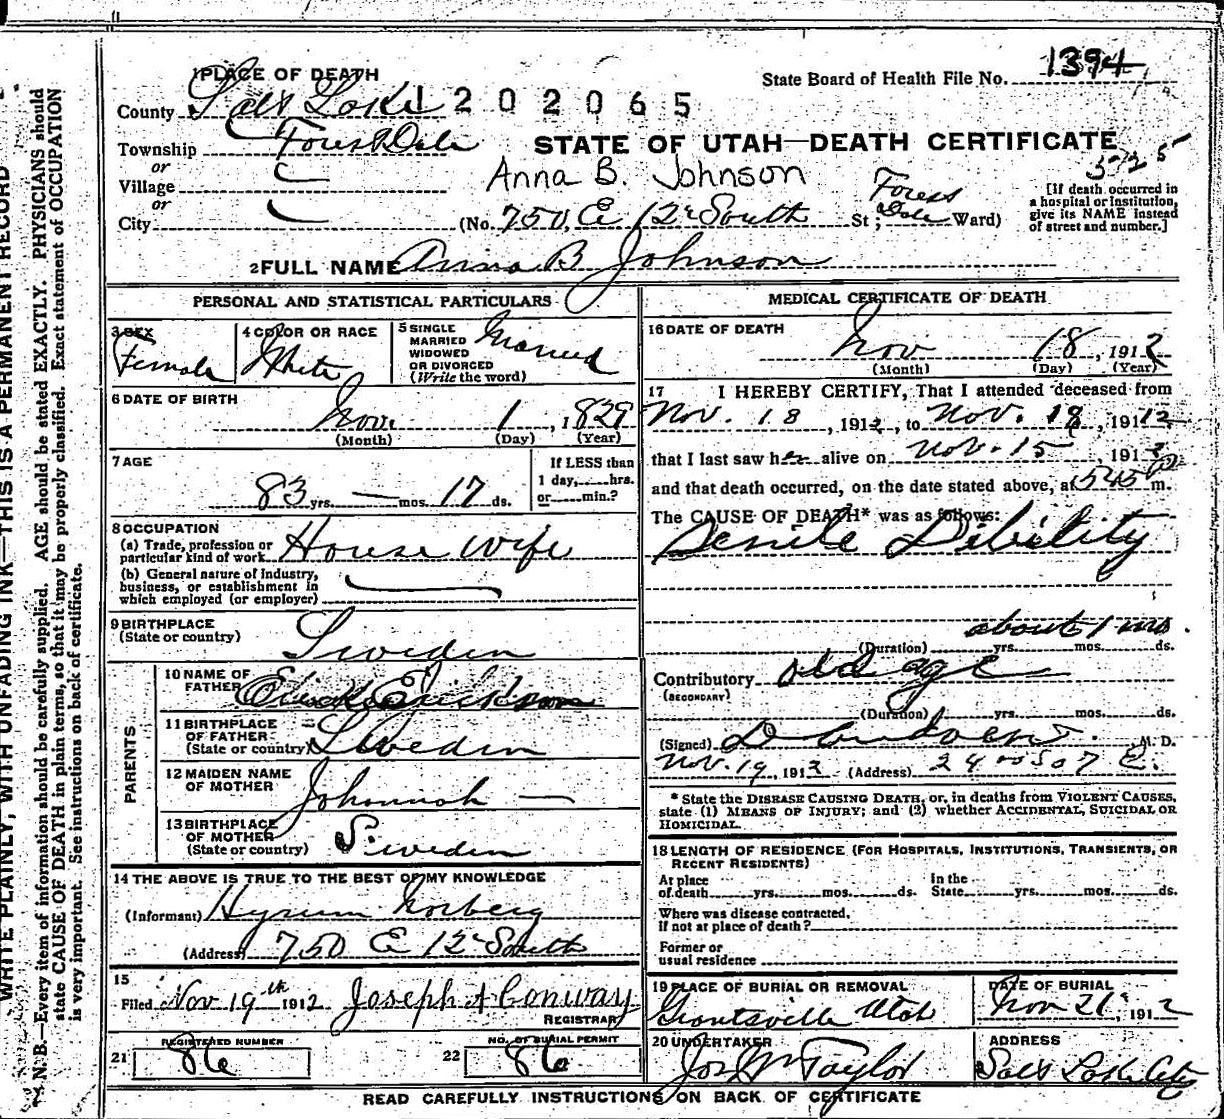 WRITE PLAINLY, WITH UNFADING INK—THIS IS A PERMANENT RECORD
N. B.—Every item of information should be carefully supplied. AGE should be stated EXACTLY. PHYSICIANS should
state CAUSE OF DEATH in plain terms, so that it may be properly classified. Exact statement of OCCUPATION
is very important. See instructions on back of certificate.
1 PLACE OF DEATH
State Board of Health File No. 1394
County Salt Lake 1202065
Township Forest Dale
STATE OF UTAH—DEATH CERTIFICATE
or
Village
Anna B. Johnson
or
City
(No. 750, E 12 South St; Forest Dale Ward)
[If death occurred in
a hospital or institution,
give its NAME instead
of street and number.]
2 FULL NAME Anna B Johnson
PERSONAL AND STATISTICAL PARTICULARS
3 SEX
Female
4 COLOR OR RACE
White
5 SINGLE
MARRIED
WIDOWED
OR DIVORCED
(Write the word)
Married
6 DATE OF BIRTH
Nov. 1, 1829
(Month) (Day) (Year)
7 AGE
83 yrs. — mos. 17 ds.
If LESS than
1 day, hrs.
or min.?
8 OCCUPATION
(a) Trade, profession or
particular kind of work House Wife
(b) General nature of industry,
business, or establishment in
which employed (or employer)
9 BIRTHPLACE
(State or country) Sweden
PARENTS
10 NAME OF
FATHER
11 BIRTHPLACE
OF FATHER
(State or country) Sweden
12 MAIDEN NAME
OF MOTHER Johannah —
13 BIRTHPLACE
OF MOTHER
(State or country) Sweden
14 THE ABOVE IS TRUE TO THE BEST OF MY KNOWLEDGE
(Informant) Hyrum Norberg
(Address) 750 E 12 South
15
Filed Nov 19th 1912 Joseph A Conway
REGISTRAR
21 REGISTERED NUMBER 86
22 NO. OF BURIAL PERMIT 86
MEDICAL CERTIFICATE OF DEATH
16 DATE OF DEATH
Nov 18, 1912
(Month) (Day) (Year)
17 I HEREBY CERTIFY, That I attended deceased from
Nov. 18, 1912, to Nov. 18, 1912
that I last saw her alive on Nov. 15, 1912
and that death occurred, on the date stated above, at 545 m.
The CAUSE OF DEATH* was as follows:
Senile Dibility
about 1 mo.
(Duration) yrs. mos. ds.
Contributory old age
(SECONDARY)
(Duration) yrs. mos. ds.
(Signed) M. D.
Nov. 19, 1912 (Address) 507 E.
* State the DISEASE CAUSING DEATH, or, in deaths from VIOLENT CAUSES,
state (1) MEANS OF INJURY; and (2) whether ACCIDENTAL, SUICIDAL OR
HOMICIDAL.
18 LENGTH OF RESIDENCE (FOR HOSPITALS, INSTITUTIONS, TRANSIENTS, OR
RECENT RESIDENTS)
At place
of death yrs. mos. ds.
In the
State yrs. mos. ds.
Where was disease contracted,
if not at place of death?
Former or
usual residence
19 PLACE OF BURIAL OR REMOVAL
Grantsville Utah
DATE OF BURIAL
Nov 21, 1912
20 UNDERTAKER
Jos Wm Taylor
ADDRESS
Salt Lake City
READ CAREFULLY INSTRUCTIONS ON BACK OF CERTIFICATE